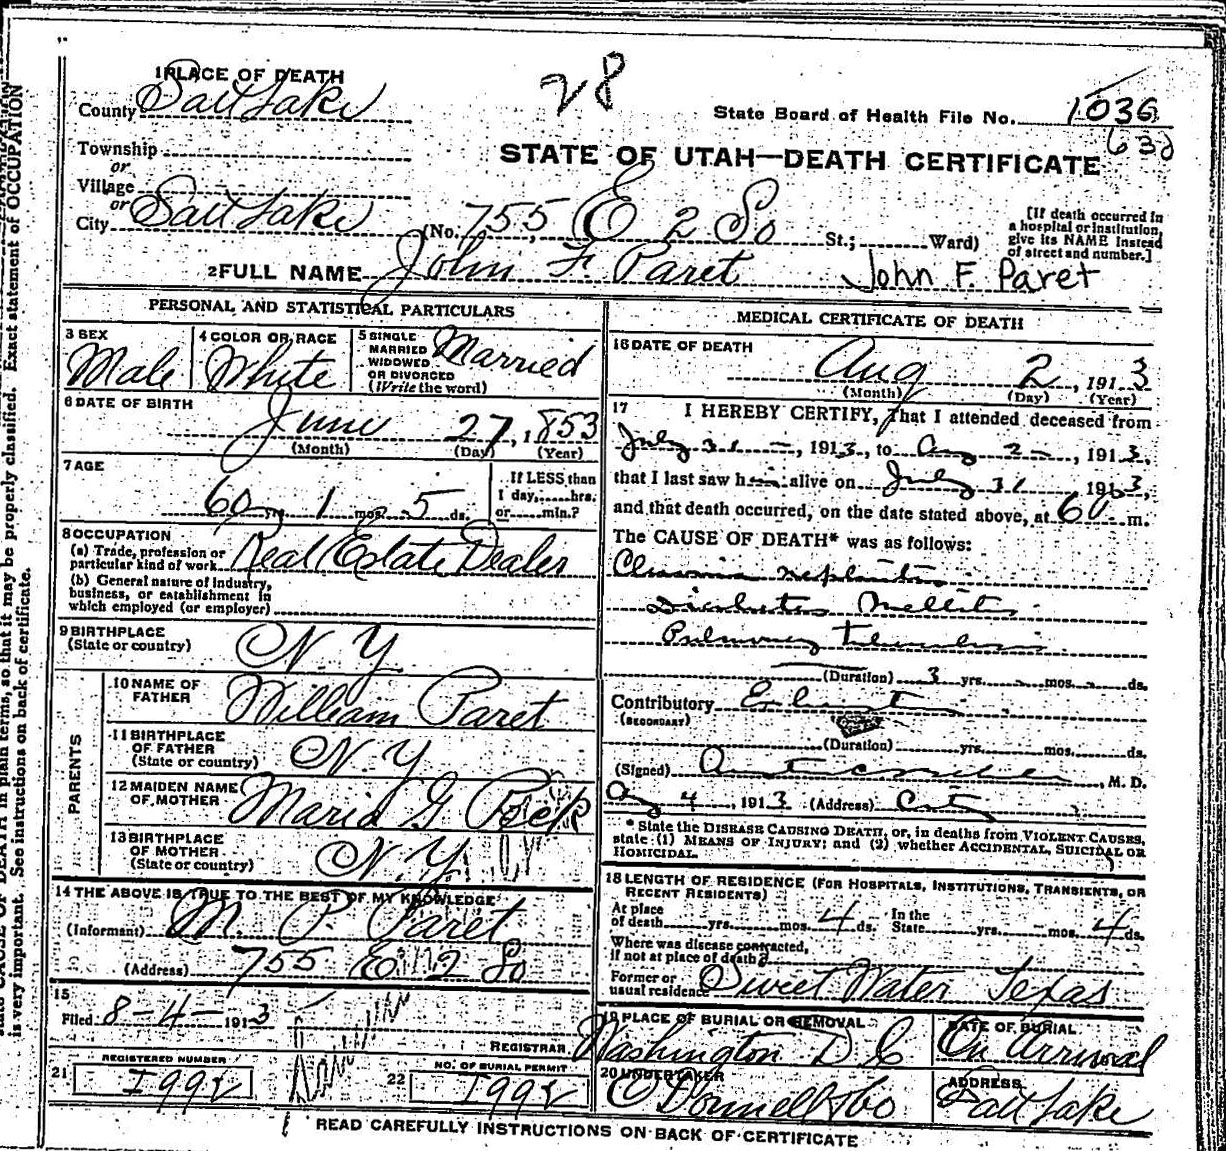 28
1 PLACE OF DEATH
County Salt Lake
State Board of Health File No. 1036
Township
or
Village
or
City Salt Lake
STATE OF UTAH—DEATH CERTIFICATE
(No. 755, E 2 So St.; Ward)
[If death occurred in
a hospital or institution,
give its NAME instead
of street and number.]
2 FULL NAME John F. Paret John F. Paret
PERSONAL AND STATISTICAL PARTICULARS
3 SEX
Male
4 COLOR OR RACE
White
5 SINGLE
MARRIED
WIDOWED
OR DIVORCED
(Write the word)
Married
6 DATE OF BIRTH
June 27, 1853
(Month) (Day) (Year)
7 AGE
60 yrs. 1 mos. 5 ds.
If LESS than
1 day, hrs.
or min.?
8 OCCUPATION
(a) Trade, profession or
particular kind of work Real Estate Dealer
(b) General nature of Industry,
business, or establishment in
which employed (or employer)
9 BIRTHPLACE
(State or country) N. Y.
PARENTS
10 NAME OF
FATHER William Paret
11 BIRTHPLACE
OF FATHER
(State or country) N. Y.
12 MAIDEN NAME
OF MOTHER Maria G Peck
13 BIRTHPLACE
OF MOTHER
(State or country) N. Y.
14 THE ABOVE IS TRUE TO THE BEST OF MY KNOWLEDGE
(Informant) M. P. Paret
(Address) 755 E 2 So
15
Filed 8-4- 1913
REGISTRAR
REGISTERED NUMBER
21 1992
NO. OF BURIAL PERMIT
22 1992
MEDICAL CERTIFICATE OF DEATH
16 DATE OF DEATH
Aug 2, 1913
(Month) (Day) (Year)
17 I HEREBY CERTIFY, That I attended deceased from
July 31 -, 1913, to Aug 2 -, 1913,
that I last saw him alive on July 31 1913,
and that death occurred, on the date stated above, at m.
The CAUSE OF DEATH* was as follows:
Chronic nephritis
Diabetes Mellitis
Pulmonary tuberculosis
(Duration) 3 yrs. - mos. - ds.
Contributory
(SECONDARY)
(Duration) yrs. mos. ds.
(Signed) M. D.
Aug 4, 1913 (Address) City
* State the DISEASE CAUSING DEATH, or, in deaths from VIOLENT CAUSES,
state (1) MEANS OF INJURY; and (2) whether ACCIDENTAL, SUICIDAL OR
HOMICIDAL.
18 LENGTH OF RESIDENCE (FOR HOSPITALS, INSTITUTIONS, TRANSIENTS, OR
RECENT RESIDENTS)
At place
of death yrs. mos. 4 ds.
In the
State yrs. mos. 4 ds.
Where was disease contracted,
if not at place of death?
Former or
usual residence Sweet Water Texas
19 PLACE OF BURIAL OR REMOVAL
Washington D C
DATE OF BURIAL
On Arrival
20 UNDERTAKER
O'Donnell & Co
ADDRESS
Salt Lake
READ CAREFULLY INSTRUCTIONS ON BACK OF CERTIFICATE
CAUSE OF DEATH in plain terms, so that it may be properly classified. Exact statement of OCCUPATION
is very important. See instructions on back of certificate.